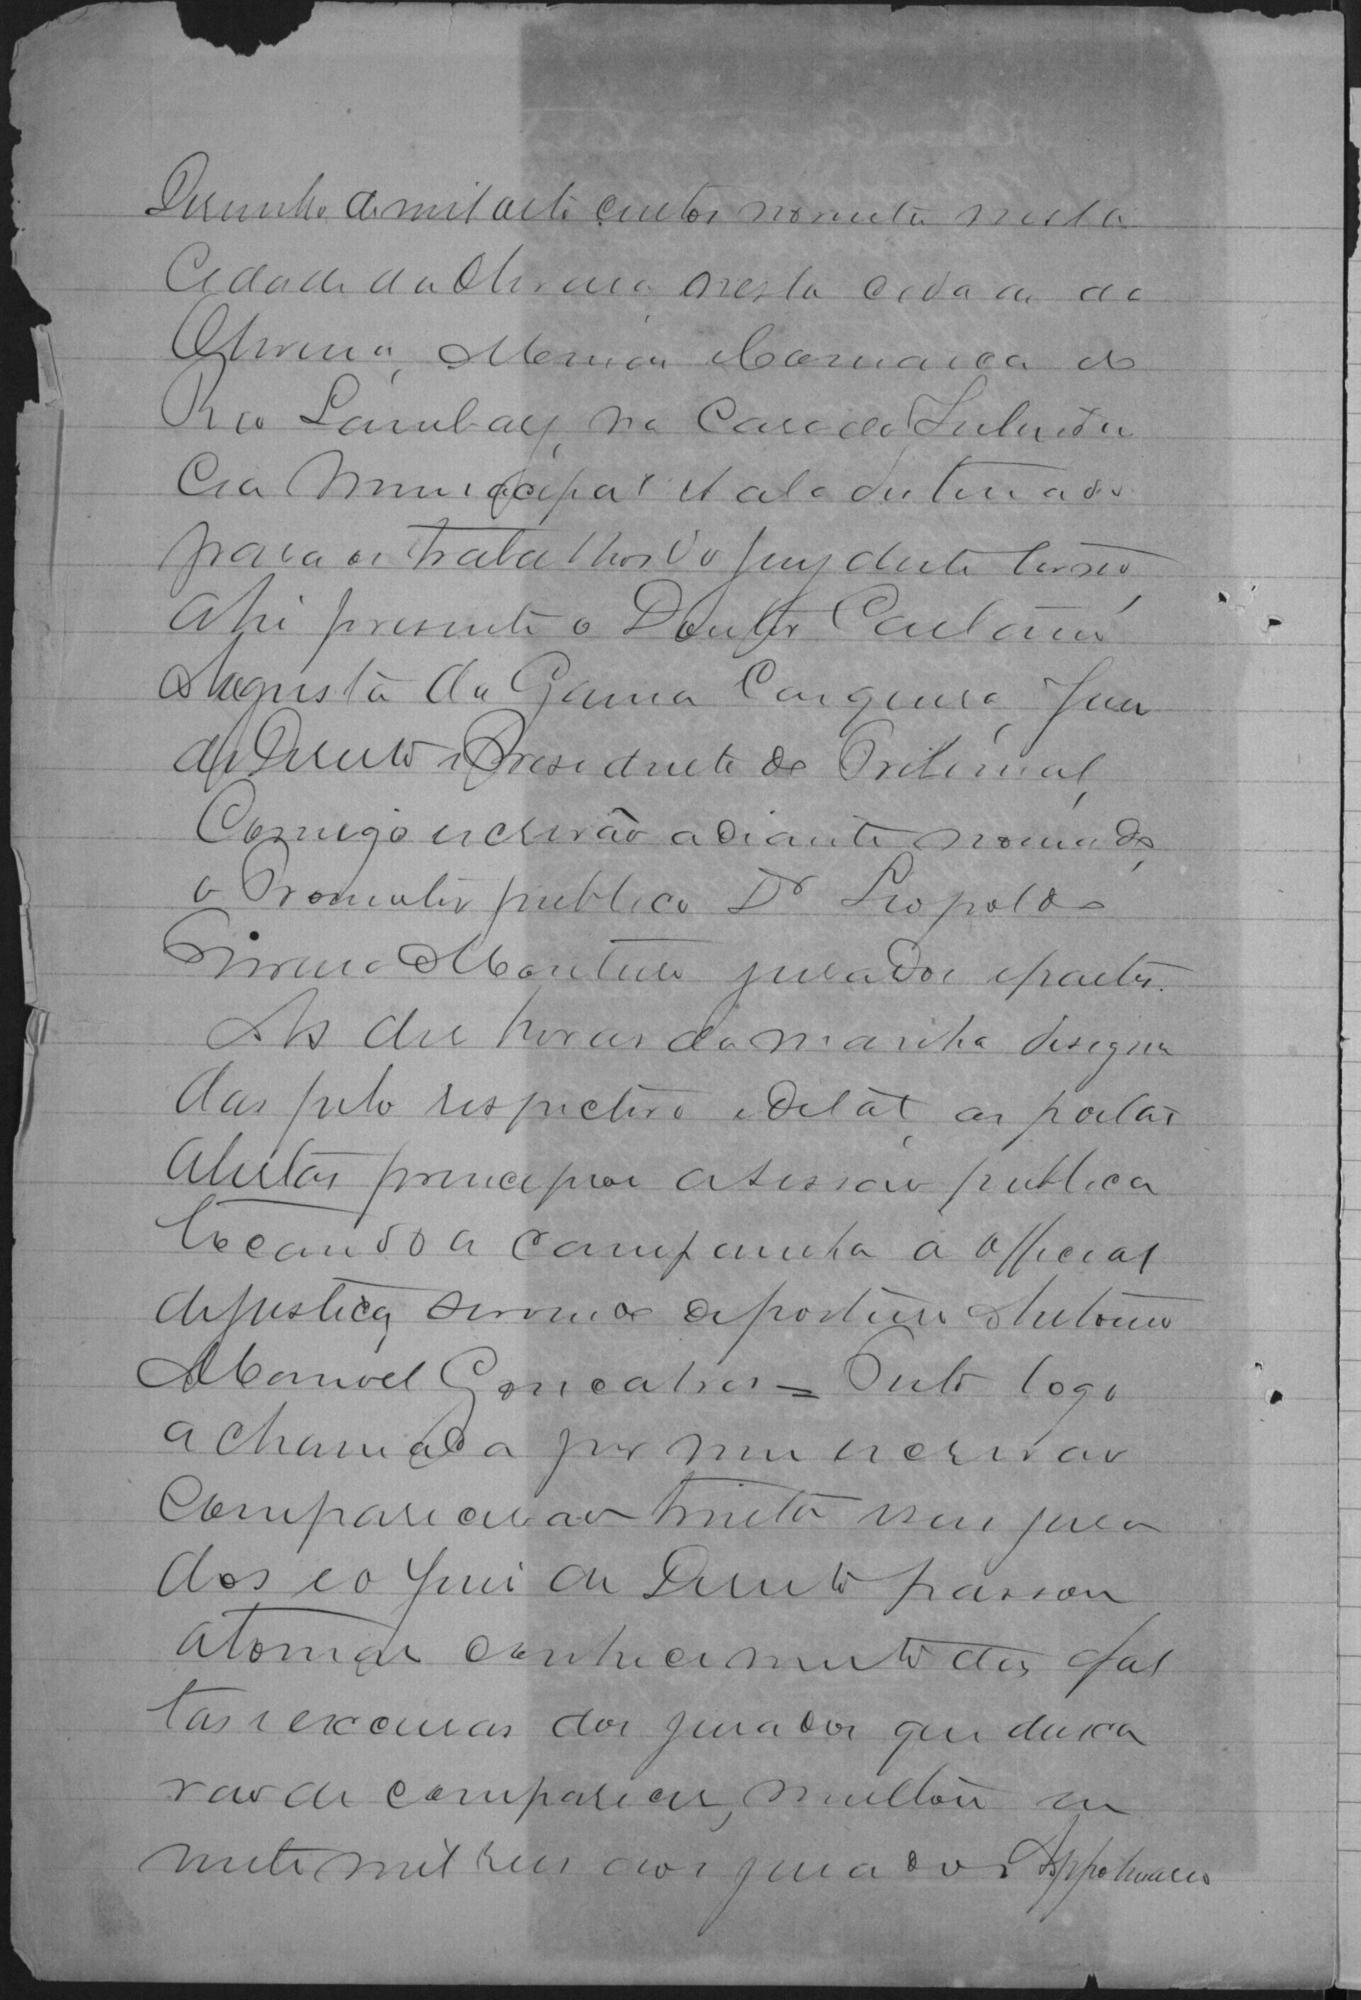 Dezembro de mil oito centos noventa nesta
Cidade da Oliveira nesta cidade de
Oliveira, Comarca do
Rio Lambary, na Casa da Intenden
cia Municipal e sala destinada
para os trabalhos do jury deste termo,
ahi presente o Doutor Caetano
Augusto da Gama Cerqueira, Juiz
de Direito e Presidente do Tribunal,
Comigo escrivão adiante nomeado,
o Promotor publico Dr Leopoldo
Monteiro jurados e partes.
As dez horas da manha designa
das pelo respectivo edital, as portas
abertas principiou a sessão publica
tocando a campanha o official
de justiça servindo de porteiro Antonio
Manoel Gonçalves = Feita logo
a chamada por mim escrivão
Comparecerão trinta e um jura
dos e o Juiz de Direito passou
a tomar conhecimento das fal
tas e excusas dos jurados que deixa
rão de comparecer, multou em
vinte mil reis aos jurados